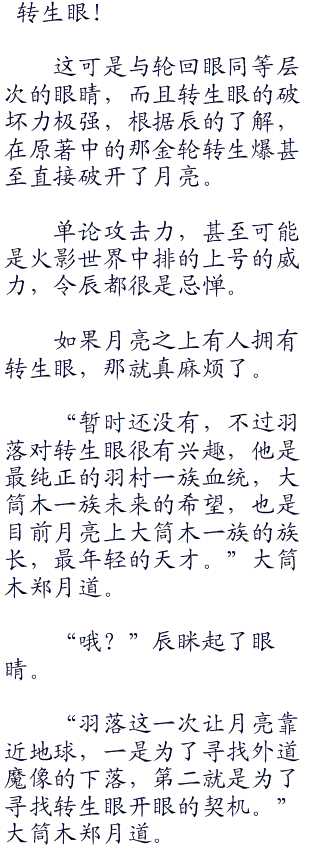 转生眼！
这可是与轮回眼同等层
次的眼睛，而且转生眼的破
坏力极强，根据辰的了解，
在原著中的那金轮转生爆甚
至直接破开了月亮。
单论攻击力，甚至可能
是火影世界中排的上号的威
力，令辰都很是忌惮。
如果月亮之上有人拥有
转生眼，那就真麻烦了。
“暂时还没有，不过羽
落对转生眼很有兴趣，他是
最纯正的羽村一族血统，大
筒木一族未来的希望，也是
目前月亮上大筒木一族的族
长，最年轻的天才。”大筒
木郑月道。
“哦？”辰眯起了眼
睛。
“羽落这一次让月亮靠
近地球，一是为了寻找外道
魔像的下落，第二就是为了
寻找转生眼开眼的契机。”
大筒木郑月道。